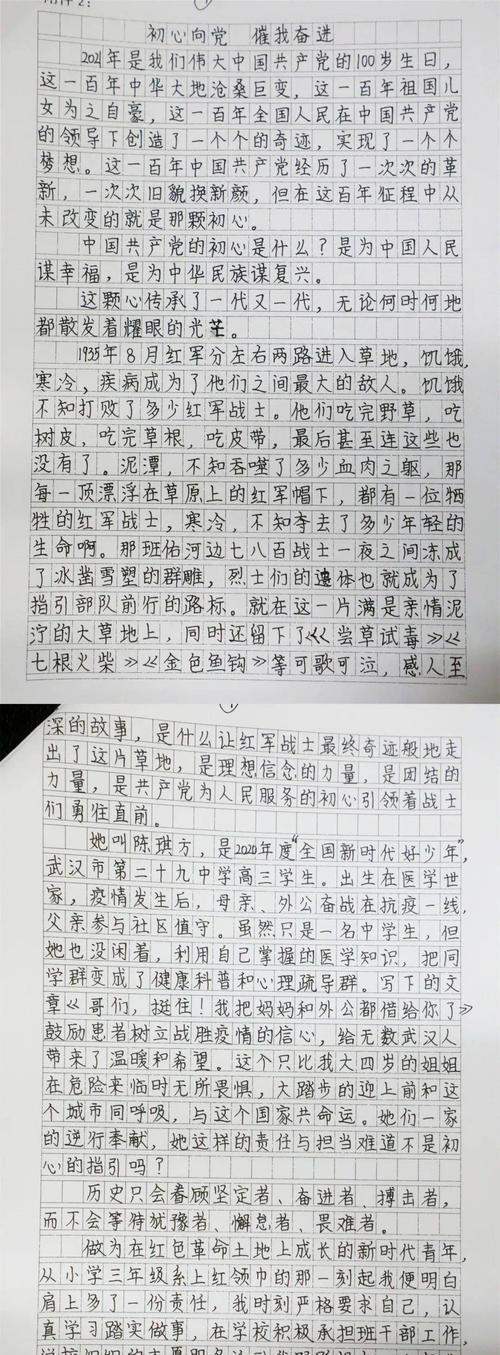 附件2:
初心向党 催我奋进
2021年是我们伟大中国共产党的100岁生日,
这一百年中华大地沧桑巨变,这一百年祖国儿
女为之自豪,这一百年全国人民在中国共产党
的领导下创造了一个个的奇迹,实现了一个个
梦想。这一百年中国共产党经历了一次次的革
新,一次次旧貌换新颜,但在这百年征程中从
未改变的就是那颗初心。
中国共产党的初心是什么?是为中国人民
谋幸福,是为中华民族谋复兴。
这颗心传承了一代又一代,无论何时何地
都散发着耀眼的光芒。
1935年8月红军分左右两路进入草地,饥饿,
寒冷,疾病成为了他们之间最大的敌人。饥饿
不知打败了多少红军战士。他们吃完野草,吃
树皮,吃完草根,吃皮带,最后甚至连这些也
没有了。泥潭,不知吞噬了多少血肉之躯,那
每一顶漂浮在草原上的红军帽下,都有一位牺
牲的红军战士,寒冷,不知夺去了多少年轻的
生命啊。那班佑河边七八百战士一夜之间冻成
了冰凿雪塑的群雕,烈士们的遗体也就成为了
指引部队前行的路标。就在这一片满是亲情泥
泞的大草地上,同时还留下了《尝草试毒》《
七根火柴》《金色鱼钩》等可歌可泣,感人至
深的故事,是什么让红军战士最终奇迹般地走
出了这片草地,是理想信念的力量,是团结的
力量,是共产党为人民服务的初心引领着战士
们勇往直前。
她叫陈琪方,是2020年度"全国新时代好少年",
武汉市第二十九中学高三学生。出生在医学世
家,疫情发生后,母亲、外公奋战在抗疫一线,
父亲参与社区值守。虽然只是一名中学生,但
她也没闲着,利用自己掌握的医学知识,把同
学群变成了健康科普和心理疏导群。写下的文
章《哥们,挺住!我把妈妈和外公都借给你了》
鼓励患者树立战胜疫情的信心,给无数武汉人
带来了温暖和希望。这个只比我大四岁的姐姐
在危险来临时无所畏惧,大踏步的迎上前和这
个城市同呼吸,与这个国家共命运。她们一家
的逆行奉献,她这样的责任与担当难道不是初
心的指引吗?
历史只会眷顾坚定者、奋进者、搏击者,
而不会等待犹豫者、懈怠者、畏难者。
做为在红色革命土地上成长的新时代青年,
从小学三年级系上红领巾的那一刻起我便明白
肩上多了一份责任,我时刻严格要求自己,认
真学习踏实做事,在学校积极承担班干部工作,